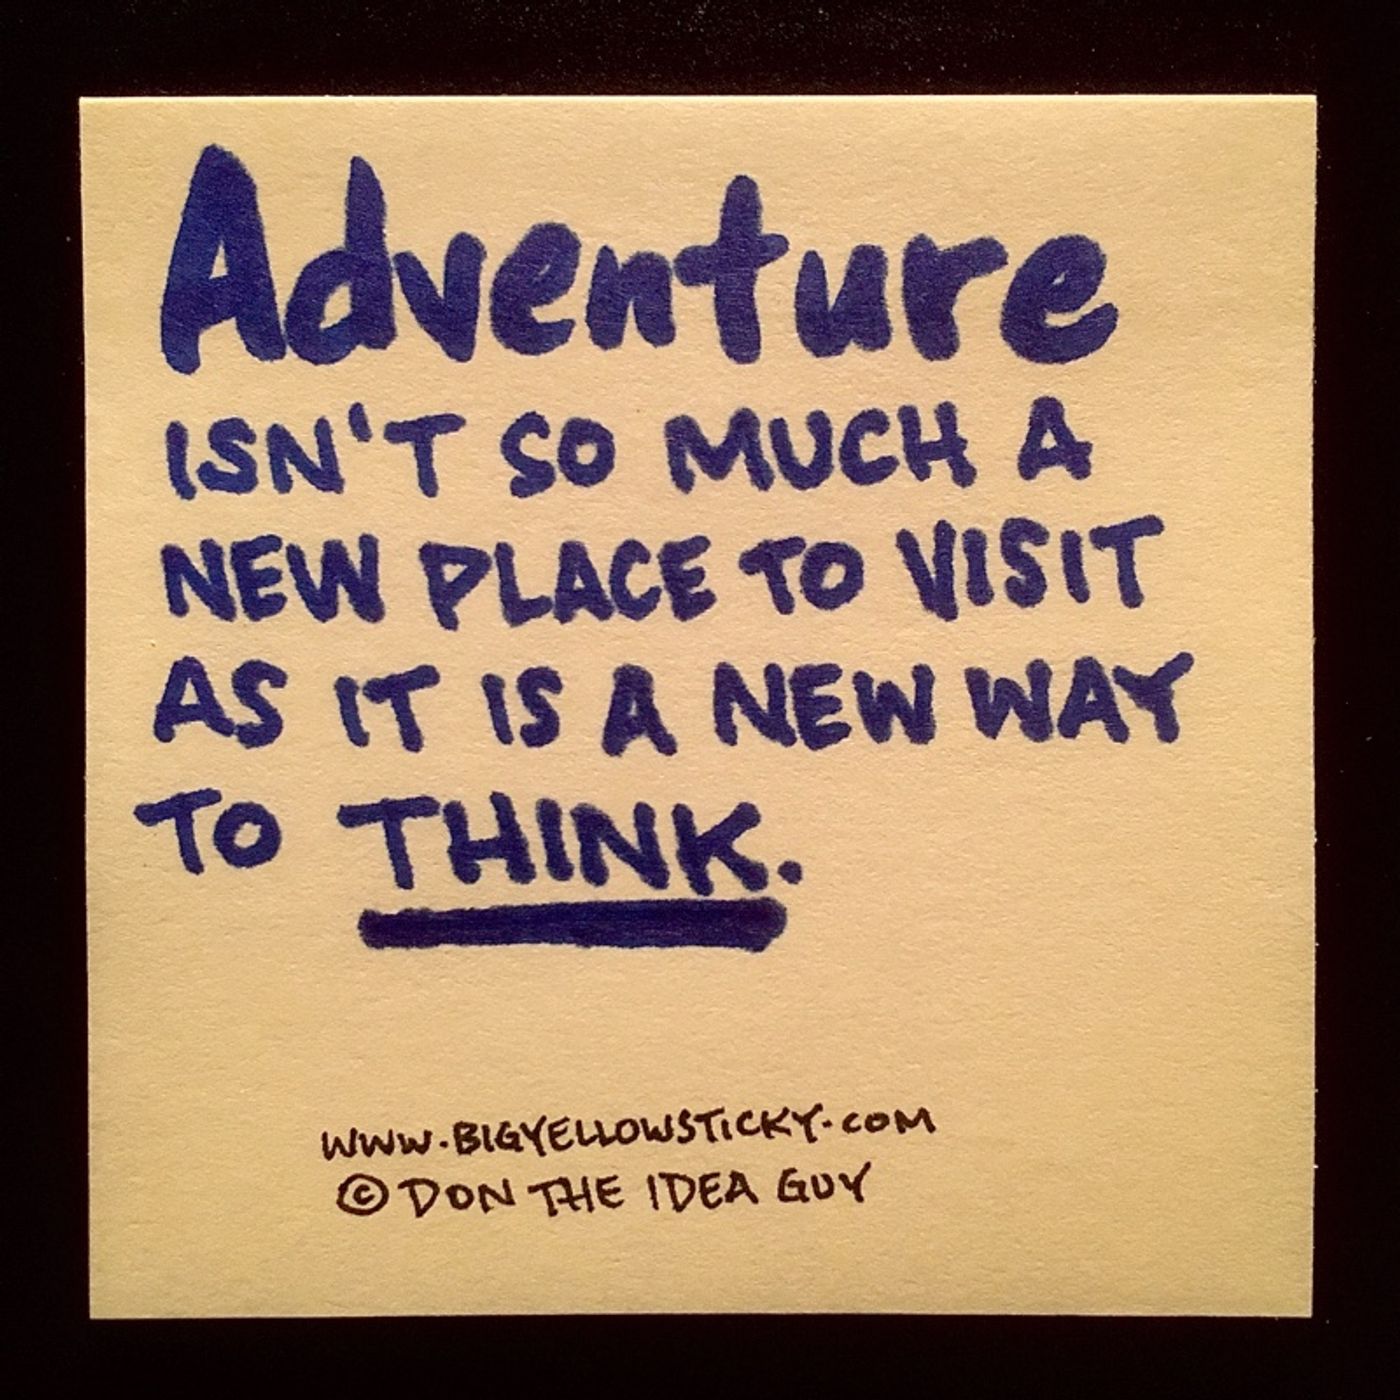 Adventure
ISN'T SO MUCH A
NEW PLACE TO VISIT
AS IT IS A NEW WAY
TO THINK.
WWW.BIGYELLOWSTICKY.COM
© DON THE IDEA GUY